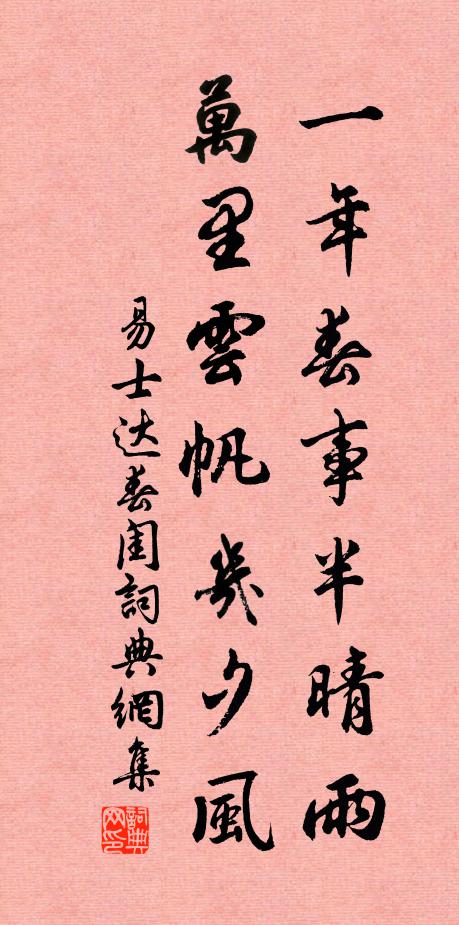 一年春事半晴雨
萬里雲帆幾夕風
易士达春閨詞典網集
詞典网印